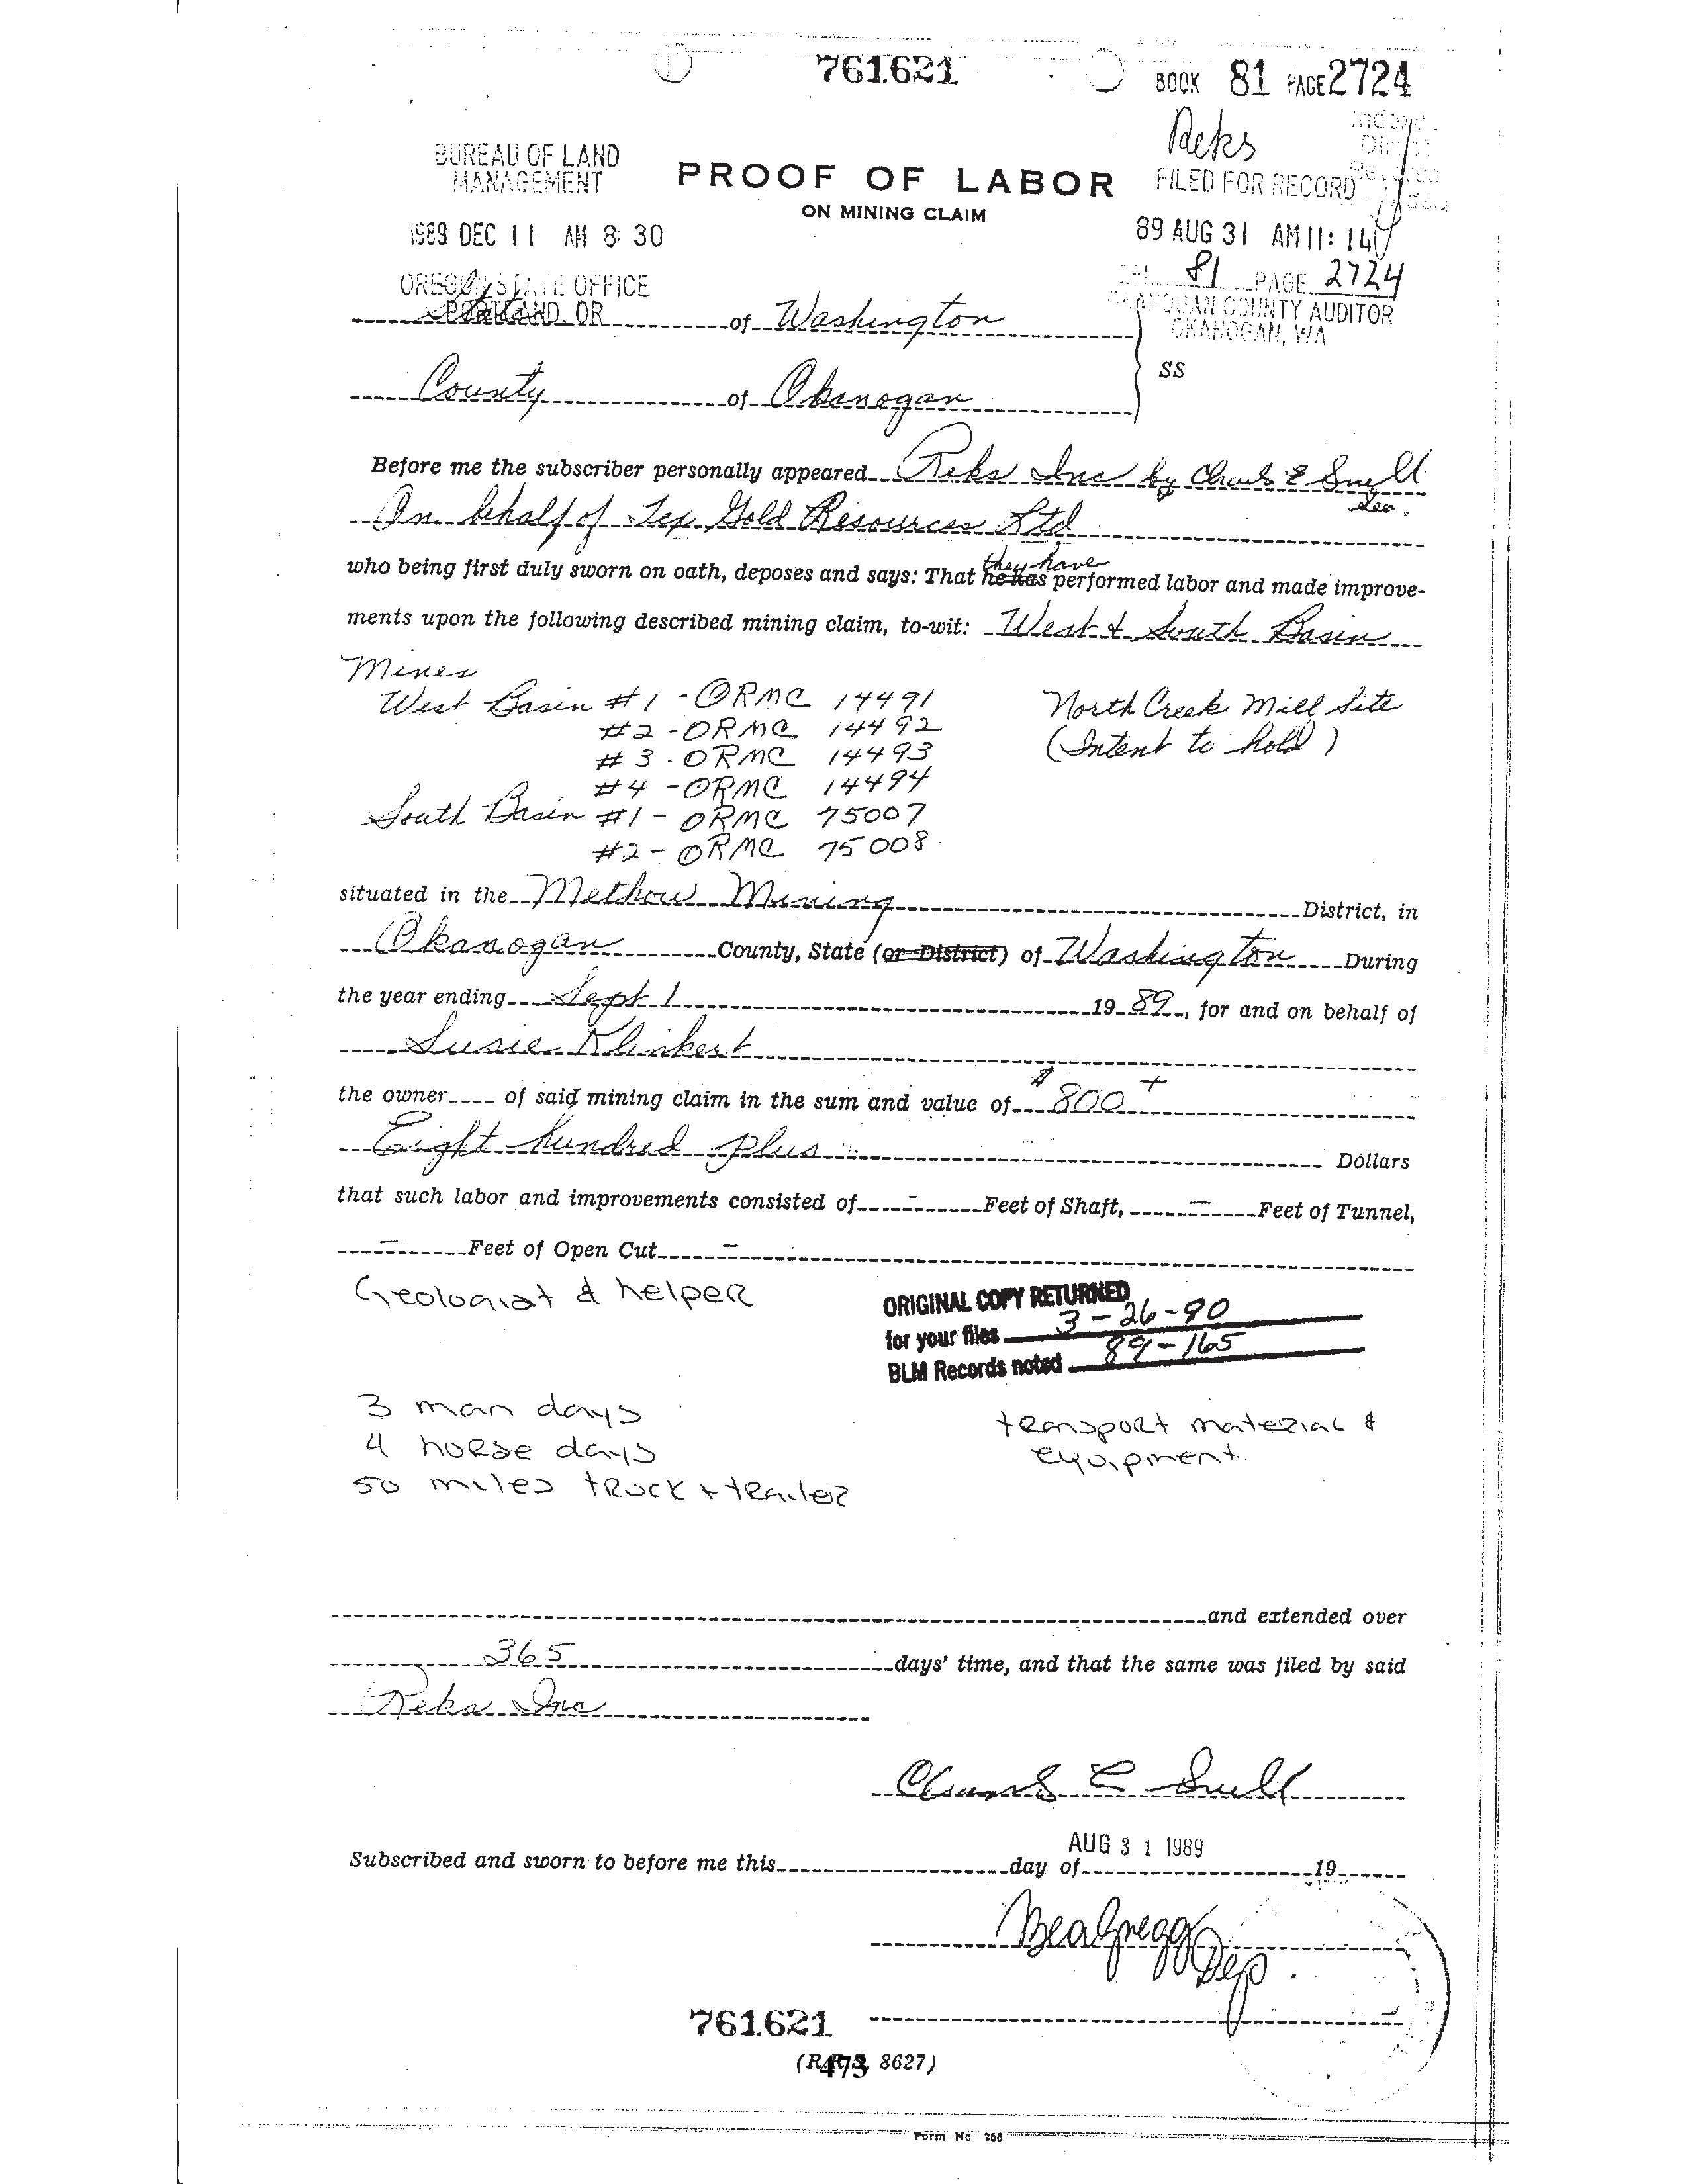 761621
BOOK 81 PAGE 2724
Reks
BUREAU OF LAND
MANAGEMENT
PROOF OF LABOR
FILED FOR RECORD
ON MINING CLAIM
1989 DEC 11 AM 8:30
89 AUG 31 AM 11:14
OREGON STATE OFFICE
81 PAGE 2724
PORTLAND, OR
State of Washington
OKANOGAN COUNTY AUDITOR
OKANOGAN, WA
SS
County of Okanogan
Before me the subscriber personally appeared Reks Inc by E Snell
On behalf of Tex Gold Resources Ltd
they have
who being first duly sworn on oath, deposes and says: That he has performed labor and made improve-
ments upon the following described mining claim, to-wit: West & South Basin
Mines
West Basin #1 - ORMC 14491 North Creek Mill Site
#2 - ORMC 14492 (Intent to hold)
#3 - ORMC 14493
#4 - ORMC 14494
South Basin #1 - ORMC 75007
#2 - ORMC 75008
situated in the Methow Mining District, in
Okanogan County, State (or District) of Washington During
the year ending Sept 1 1989, for and on behalf of
Susie Klinkert
the owner of said mining claim in the sum and value of $800+
Eight hundred plus Dollars
that such labor and improvements consisted of - Feet of Shaft, - Feet of Tunnel,
- Feet of Open Cut -
Geologist & helper
ORIGINAL COPY RETURNED
for your files 3-26-90
BLM Records noted 89-165
3 man days
transport material &
4 horse days
equipment.
50 miles truck + trailer
and extended over
365 days' time, and that the same was filed by said
Reks Inc
E Snell
AUG 31 1989
Subscribed and sworn to before me this day of 19
Bea Gregg
Dep.
761621
473
8627)
Form No. 256